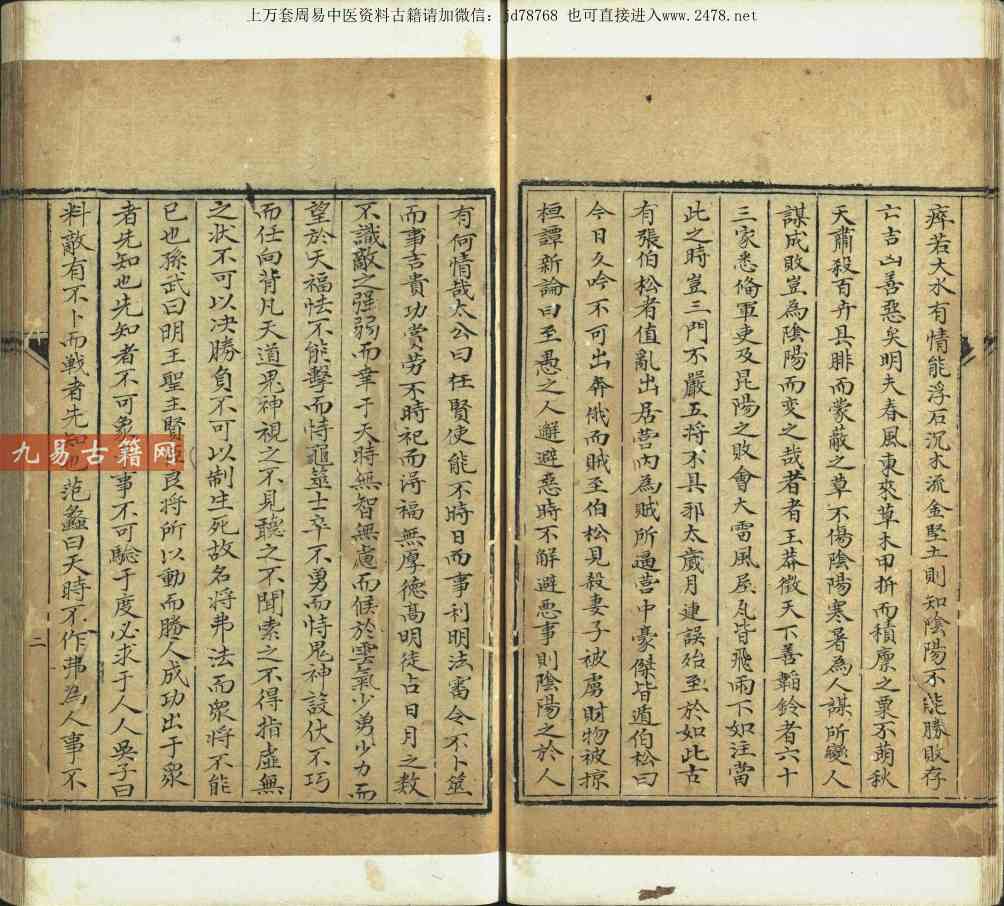 上万套周易中医资料古籍请加微信：jd78768 也可直接进入www.2478.net
瘁若大水有情能浮石沉木流金堅土則知陰陽不能勝敗存
亡吉凶善惡矣明夫春風東來草木甲折而積廩之粟不萌秋
天肅殺百卉具腓而蒙蔽之草不傷陰陽寒暑為人謀所變人
謀成敗豈為陰陽而變之哉昔者王莽徵天下善韜鈐者六十
三家悉俻軍吏及昆陽之敗會大雷風屋瓦皆飛雨下如注當
此之時豈三門不嚴五将不具邪太歲月建誤殆至於如此古
有張伯松者值亂出居营內為賊所逼营中豪傑皆遁伯松曰
今日久吟不可出奔俄而賊至伯松見殺妻子被虜財物被掠
桓譚新論曰至愚之人避惡時不解避悪事則陰陽之於人
有何情哉太公曰任賢使能不時日而事利明法審令不卜筮
而事吉貴功賞劳不時祀而淂福無厚德髙明徒占日月之数
不識敵之强弱而幸于天時無智無慮而候於雲氣少勇少力而
望於天福怯不能擊而恃龜筮士卒不勇而恃鬼神設伏不巧
而任向背凡天道鬼神視之不見聽之不聞索之不得指虛無
之状不可以决勝負不可以制生死故名将弗法而衆将不能
已也孫武曰明王聖主賢良将所以動而勝人成功出于衆
者先知也先知者不可象事不可驗于度必求于人人吳子曰
料敵有不卜而戰者先知也范蠡曰天時不作弗為人事不
二
九易古籍网